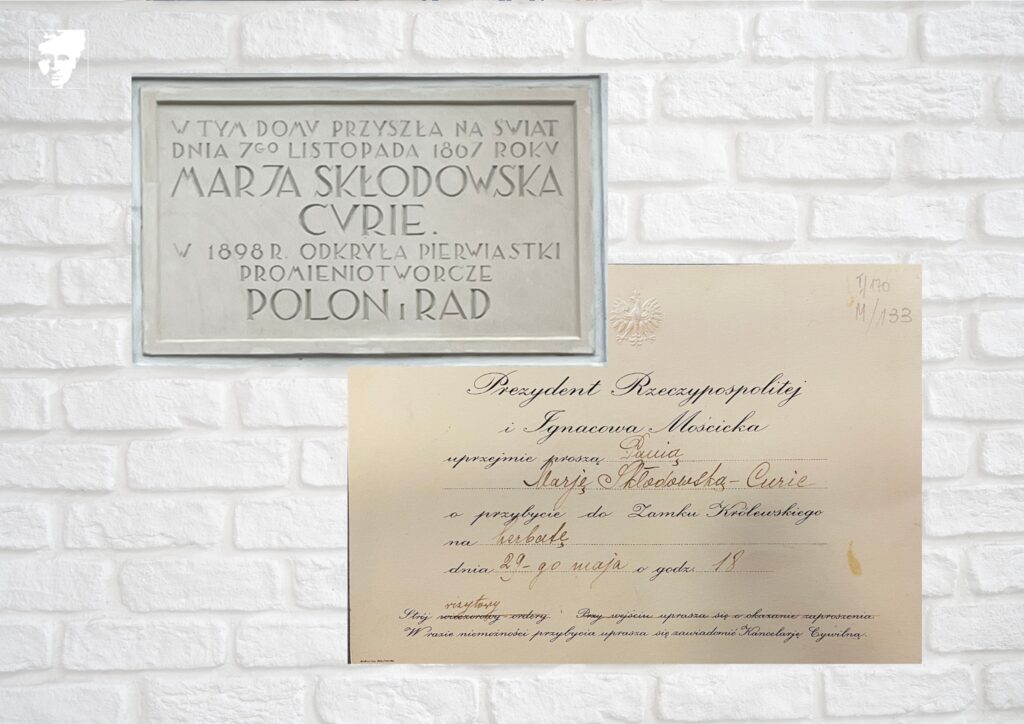 W TYM DOMV PRZYSZŁA NA SWIAT
DNIA 7GO LISTOPADA 1867 ROKV
MARJA SKŁODOWSKA
CVRIE.
W 1898 R. ODKRYŁA PIERWIASTKI
PROMIENIOTWORCZE
POLON i RAD
T/170
M/133
Prezydent Rzeczypospolitej
i Ignacowa Mościcka
uprzejmie proszą Panią
Marję Skłodowską-Curie
o przybycie do Zamku Królewskiego
na herbatę
dnia 29-go maja o godz. 18
wizytowy
Strój wieczorowy ordery. Przy wejściu uprasza się o okazanie zaproszenia.
W razie niemożności przybycia uprasza się zawiadomić Kancelarję Cywilną.